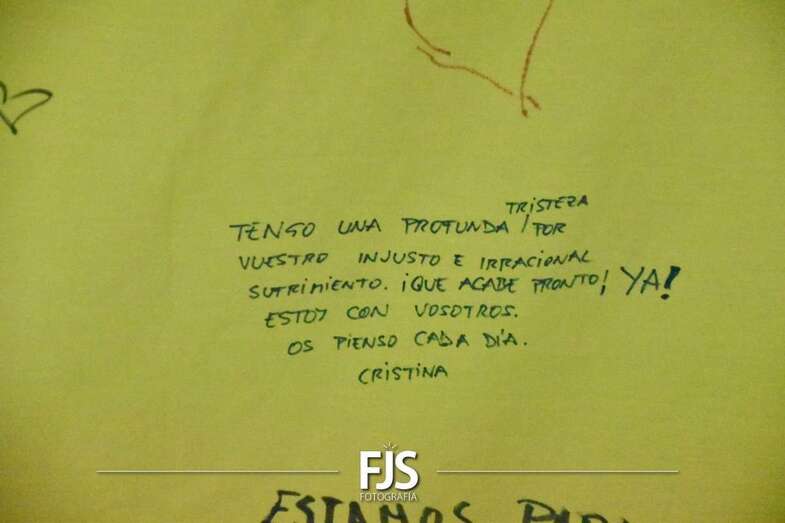 TRISTEZA
TENGO UNA PROFUNDA / POR
VUESTRO INJUSTO E IRRACIONAL
SUFRIMIENTO. ¡QUE ACABE PRONTO! YA!
ESTOY CON VOSOTROS.
OS PIENSO CADA DÍA.
CRISTINA
FJS
FOTOGRAFÍA
ESTAMOS